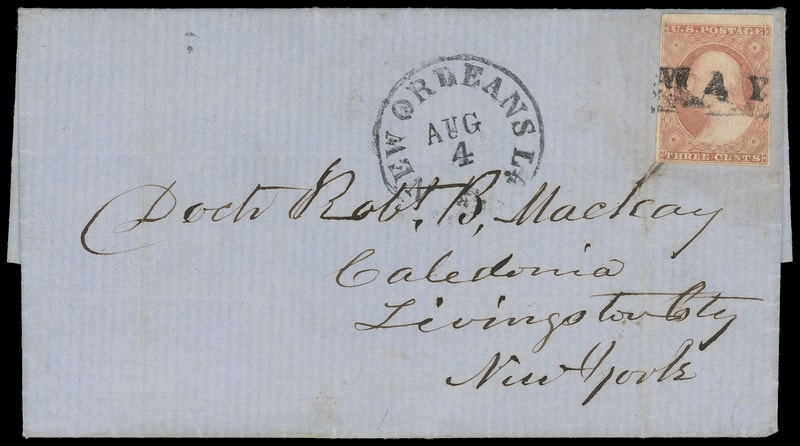 U.S. POSTAGE
WAY
THREE CENTS
NEW ORLEANS La
AUG
4
Doctr Robt. B. Mackay
Caledonia
Livingston Cty
New York